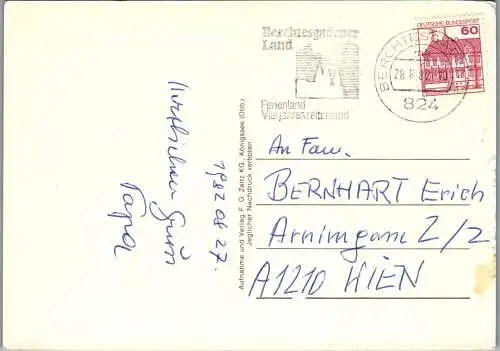 Herzlichen Gruss
Papa
1982 08 27.
Aufnahme und Verlag F. G. Zenz KG., Königssee (Obb.)
Jeglicher Nachdruck verboten
Berchtesgadener
Land
Ferienland
Vierjahreszeitenland
824
DEUTSCHE BUNDESPOST
60
An Fam.
BERNHART Erich
Arnimgasse 2/2
A1210 WIEN